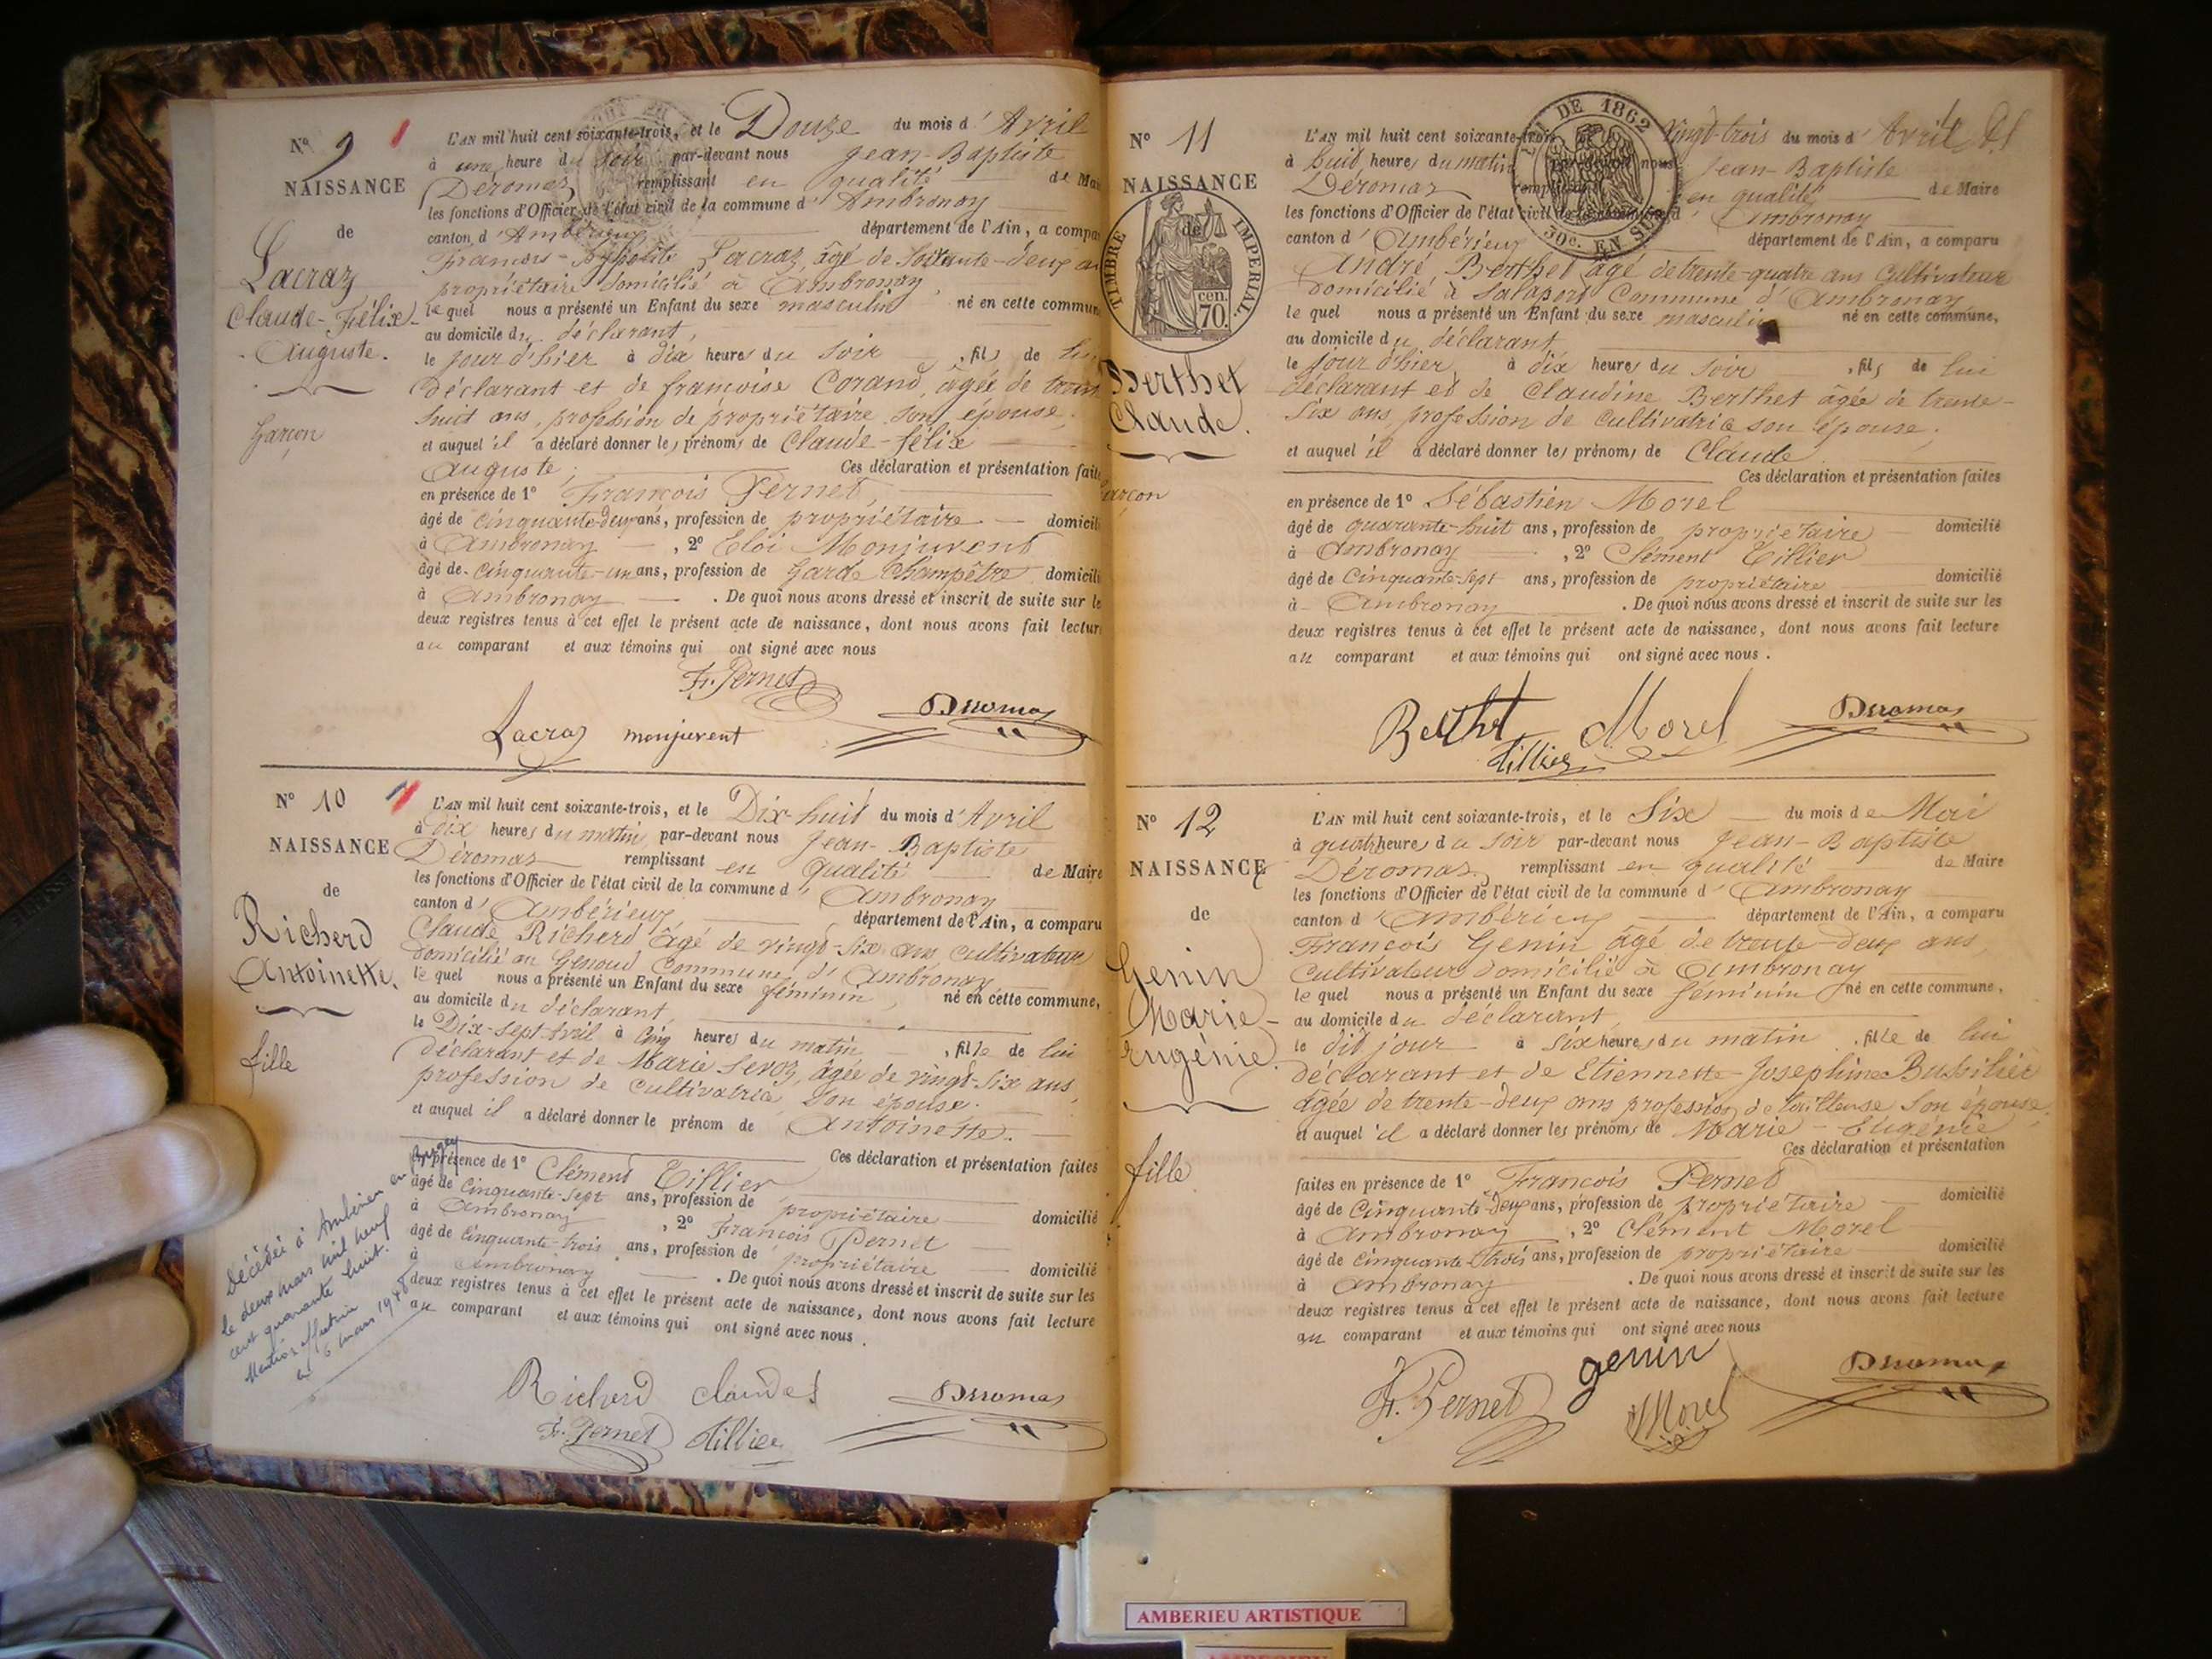 N° 9
NAISSANCE
de
Lacraz
Claude-Félix-
Auguste.
Garçon
L'AN mil huit cent soixante-trois, et le Douze du mois d'Avril
à une heure du soir par-devant nous Jean-Baptiste
Déromas remplissant en qualité de Mai
les fonctions d'Officier de l'état civil de la commune d'Ambronay
canton d'Ambérieux département de l'Ain, a compa
François-Hypolite Lacraz, âgé de soixante-deux an
propriétaire domicilié à Ambronay,
lequel nous a présenté un Enfant du sexe masculin né en cette commun
au domicile du déclarant,
le jour d'hier à dix heures du soir, fils de lui
déclarant et de françoise Corand, âgée de trente
huit ans, profession de propriétaire son épouse;
et auquel il a déclaré donner les prénoms de Claude-félix
Auguste; Ces déclaration et présentation faite
en présence de 1° François Pernet,
âgé de cinquante-deux ans, profession de propriétaire domicili
à Ambronay, 2° Eloi Monjuvent
âgé de cinquante-un ans, profession de Garde Champêtre domicili
à Ambronay. De quoi nous avons dressé et inscrit de suite sur le
deux registres tenus à cet effet le présent acte de naissance, dont nous avons fait lectur
au comparant et aux témoins qui ont signé avec nous
F. Pernet
Lacraz monjuvent Deromas
N° 10
NAISSANCE
de
Richerd
Antoinette.
fille
L'AN mil huit cent soixante-trois, et le Dix-huit du mois d'Avril
à dix heures du matin par-devant nous Jean-Baptiste
Déromas remplissant en qualité de Maire
les fonctions d'Officier de l'état civil de la commune d'Ambronay
canton d'Ambérieux, département de l'Ain, a comparu
Claude Richerd âgé de vingt-six ans cultivateur
domicilié au Genoud commune d'Ambronay
lequel nous a présenté un Enfant du sexe féminin, né en cette commune,
au domicile du déclarant,
le Dix-sept Avril à cinq heures du matin, fille de lui
déclarant et de Marie Sevoz, âgée de vingt-six ans,
profession de cultivatrice son épouse.
et auquel il a déclaré donner le prénom de Antoinette.
Ces déclaration et présentation faites
en présence de 1° Clément Tillier
âgé de cinquante-sept ans, profession de propriétaire domicilié
à Ambronay, 2° François Pernet
âgé de cinquante-trois ans, profession de propriétaire domicilié
à Ambronay. De quoi nous avons dressé et inscrit de suite sur les
deux registres tenus à cet effet le présent acte de naissance, dont nous avons fait lecture
au comparant et aux témoins qui ont signé avec nous.
Richerd claude Deromas
F. Pernet Tillier
Décédée à Ambérieu en Bugey
le deux mars mil neuf
cent quarante huit.
Mention effectuée
le 6 mars 1948
N° 11
NAISSANCE
TIMBRE IMPERIAL
de
cen.
70.
Berthet
Claude.
Garçon
DE 1862
50c. EN SU
L'AN mil huit cent soixante-trois Vingt-trois du mois d'Avril
à huit heures du matin par-devant nous Jean-Baptiste
Déromas remplissant en qualité de Maire
les fonctions d'Officier de l'état civil de la commune d'Ambronay
canton d'Ambérieux département de l'Ain, a comparu
André Berthet âgé de trente-quatre ans cultivateur
domicilié à Salaport Commune d'Ambronay
lequel nous a présenté un Enfant du sexe masculin né en cette commune,
au domicile du déclarant
le jour d'hier, à dix heures du soir, fils de lui
déclarant et de Claudine Berthet âgée de trente-
six ans, profession de cultivatrice son épouse;
et auquel il a déclaré donner les prénoms de Claude
Ces déclaration et présentation faites
en présence de 1° Sébastien Morel
âgé de quarante-huit ans, profession de propriétaire domicilié
à Ambronay, 2° Clément Tillier
âgé de cinquante-sept ans, profession de propriétaire domicilié
à Ambronay. De quoi nous avons dressé et inscrit de suite sur les
deux registres tenus à cet effet le présent acte de naissance, dont nous avons fait lecture
au comparant et aux témoins qui ont signé avec nous.
Berthet Morel Deromas
Tillier
N° 12
NAISSANCE
de
Genin
Marie-
Eugénie.
fille
L'AN mil huit cent soixante-trois, et le Six du mois de Mai
à quatre heures du soir par-devant nous Jean-Baptiste
Déromas, remplissant en qualité de Maire
les fonctions d'Officier de l'état civil de la commune d'Ambronay
canton d'Ambérieux département de l'Ain, a comparu
François Genin âgé de trente-deux ans,
cultivateur domicilié à Ambronay
lequel nous a présenté un Enfant du sexe féminin né en cette commune,
au domicile du déclarant,
le dit jour à six heures du matin, fille de lui
déclarant et de Etiennette-Josephine Bussilliet
âgée de trente-deux ans profession de tailleuse son épouse;
et auquel il a déclaré donner les prénoms de Marie-Eugénie
Ces déclaration et présentation
faites en présence de 1° François Pernet
âgé de cinquante-deux ans, profession de propriétaire domicilié
à Ambronay, 2° Clément Morel
âgé de cinquante-trois ans, profession de propriétaire domicilié
à Ambronay. De quoi nous avons dressé et inscrit de suite sur les
deux registres tenus à cet effet le présent acte de naissance, dont nous avons fait lecture
au comparant et aux témoins qui ont signé avec nous
F. Pernet genin Morel Deromas
AMBERIEU ARTISTIQUE
AMBERIEU